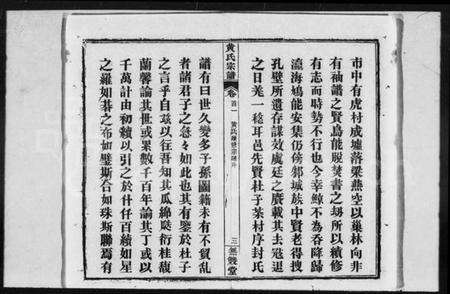 市中有虎村成墟落梁燕空以巢林向非
有袖譜之賢烏能脫焚書之劫所以續修
有志而時勢不行也今幸鯨不為吞降歸
瀛海鳩能安集仍侯郇城族中賢老得搜
孔壁所遺存謀效虞廷之賡載其去寇退
之日羌一稔耳邑先賢杜子茶村序封氏
黃氏宗譜
卷首一
三
無雙堂
譜有曰世久變多子孫圖籍未有不貿亂
者諸君子之急々如此也其有鑒於杜子
之言乎自茲以往吾知其瓜綿瓞衍桂馥
蘭馨論其世或累數千百年論其丁或以
千萬計由初續以引之於什仟百續如星
之羅如棊之布如璧斯合如珠斯聯焉有